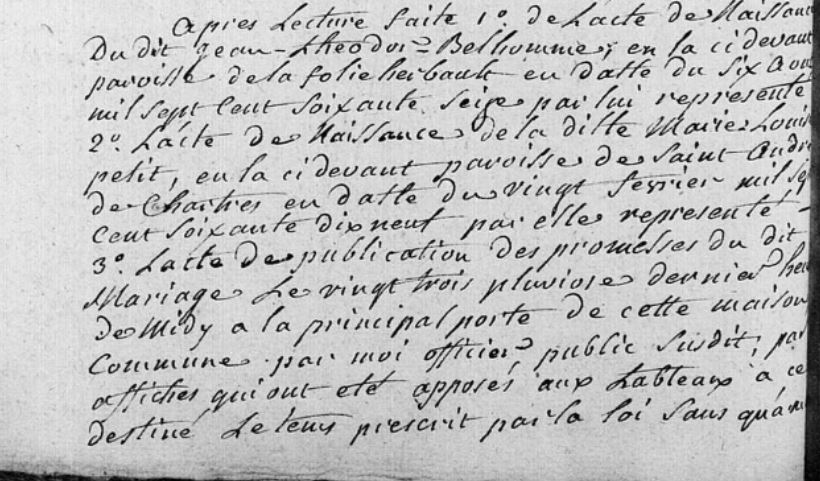 apres Lecture faite 1º. de Lacte de Naissance
Du dit jean-theodore Belhomme, en la ci devant
paroisse de la folie herbault en datte du Six Aout
mil Sept Cent Soixante Seize par lui representé
2º. Lacte de Naissance de la ditte Marie Louis
petit, en la ci devant paroisse de Saint André
de Chartres en datte du vingt fevrier mil Sep
Cent Soixante dix neuf par elle representé
3º. Lacte de publication des promesses du dit
Mariage Le vingt trois pluviose dernier heu
de Midy a la principal porte de cette maison
Commune par moi officier public Susdit, par
affiches qui ont eté apposés aux tableaux a ce
destiné Le tems prescrit par la loi Sans qu'a